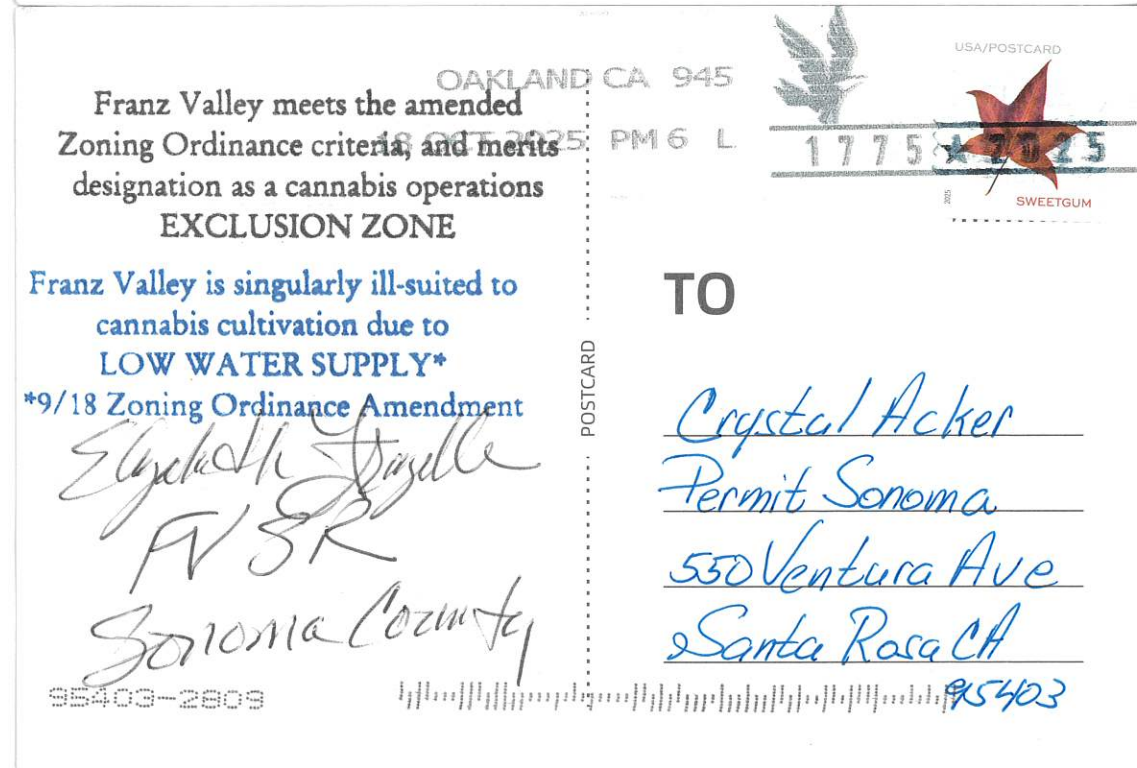 OAKLAND CA 945
18 OCT 2025 PM 6 L
1775 ★ 2025
USA/POSTCARD
2025
SWEETGUM
Franz Valley meets the amended
Zoning Ordinance criteria, and merits
designation as a cannabis operations
EXCLUSION ZONE
Franz Valley is singularly ill-suited to
cannabis cultivation due to
LOW WATER SUPPLY*
*9/18 Zoning Ordinance Amendment
Elizabeth
FVSR
Sonoma County
95403-2809
POSTCARD
TO
Crystal Acker
Permit Sonoma
550 Ventura Ave
Santa Rosa CA
95403